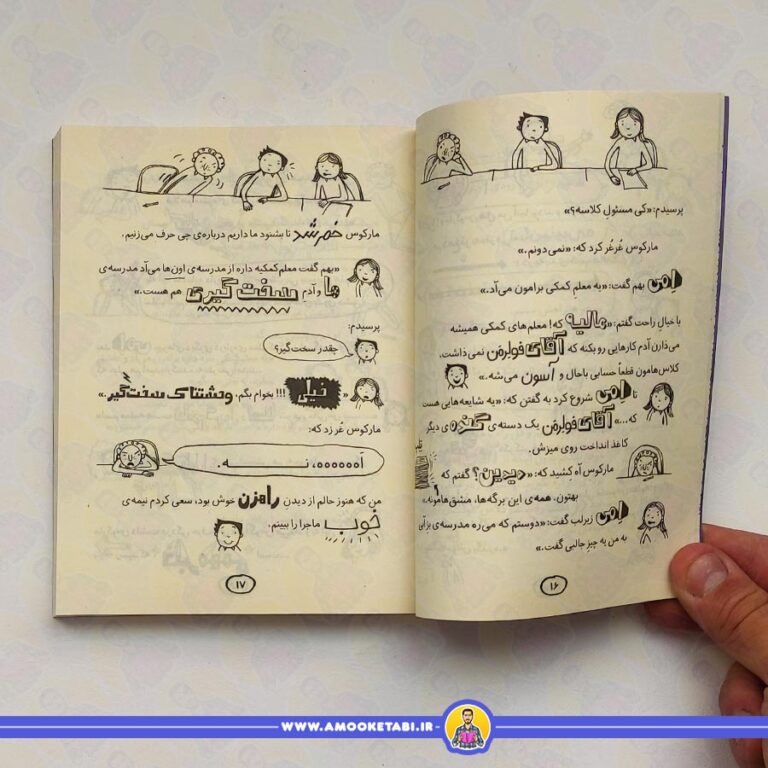 پرسیدم: «کی مسئولِ کلاسه؟»
مارکوس غُرغُر کرد که: «نمی‌دونم.»
اِمی بهم گفت: «یه معلم کمکی برامون می‌آد.»
با خیالِ راحت گفتم: «عالیه که! معلم‌های کمکی همیشه
می‌ذارن آدم کارهایی رو بکنه که آقای فولرمن نمی‌ذاشت.
کلاس‌هامون قطعاً حسابی باحال و آسون می‌شه.»
تا اِمی شروع کرد به گفتن که: «یه شایعه‌هایی هست
که...» آقای فولرمن یک دسته‌ی گُنده‌ی دیگر
کاغذ انداخت روی میزش.
مارکوس آه کشید که: «دیدین؟ گفتم که
بهتون، همه‌ی این برگه‌ها، مشق‌هامونه.»
اِمی زیرلب گفت: «دوستم که می‌ره مدرسه‌ی بزآبی
به من یه چیز جالبی گفت.»
۱۶
مارکوس خم شد تا بشنود ما داریم درباره‌ی چی حرف می‌زنیم.
«بهم گفت معلم‌کمکیه داره از مدرسه‌ی اون‌ها می‌آد مدرسه‌ی
ما و آدم سخت‌گیری هم هست.»
پرسیدم:
چقدر سخت‌گیر؟
«خیلی!!! بخوام بگم، وحشتناک سخت‌گیر.»
مارکوس غُر زد که:
آه‌ه‌ه‌ه‌ه‌ه، نـــــه.
من که هنوز حالم از دیدنِ راه‌زن خوش بود، سعی کردم نیمه‌ی
خوب ماجرا را ببینم.
۱۷
WWW.AMOOKETABI.IR